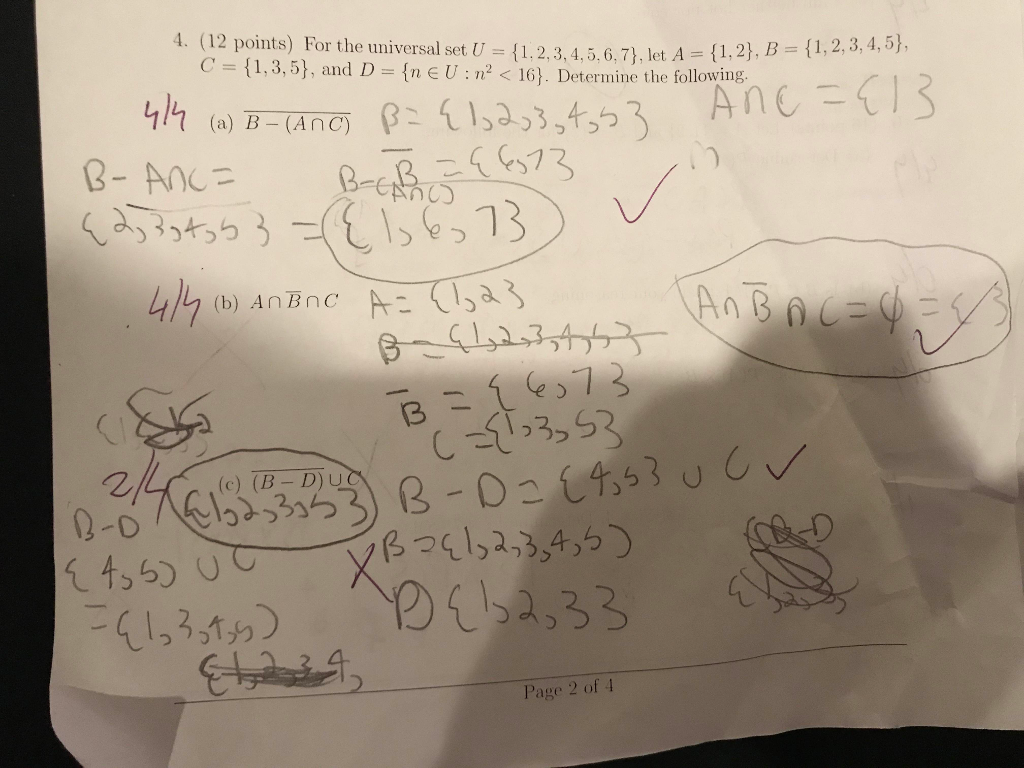 4. (12 points) For the universal set U = {1, 2, 3, 4, 5, 6, 7}, let A = {1, 2}, B = {1, 2, 3, 4, 5},
C = {1, 3, 5}, and D = {n ∈ U : n² < 16}. Determine the following.
A∩C = {1}
4/4 (a) \overline{B − (A ∩ C)} B = {1,2,3,4,5}
\overline{B} = {6,7}
B - A∩C =
B-(A∩C)
{2,3,4,5} = {1,6,7} ✓
4/4 (b) A ∩ \overline{B} ∩ C A = {1,2}
A∩\overline{B}∩C = ϕ = { } ✓
B = {1,2,3,4,5}
\overline{B} = {6,7}
C = {1,3,5}
2/4 (c) \overline{(B − D)} ∪ C B - D = {4,5} ∪ C ✓
{1,2,3,5}
B-D
X B = {1,2,3,4,5)
{4,5) ∪ C
D {1,2,3}
= {1,3,4,5)
{1,2,3 4,
Page 2 of 4